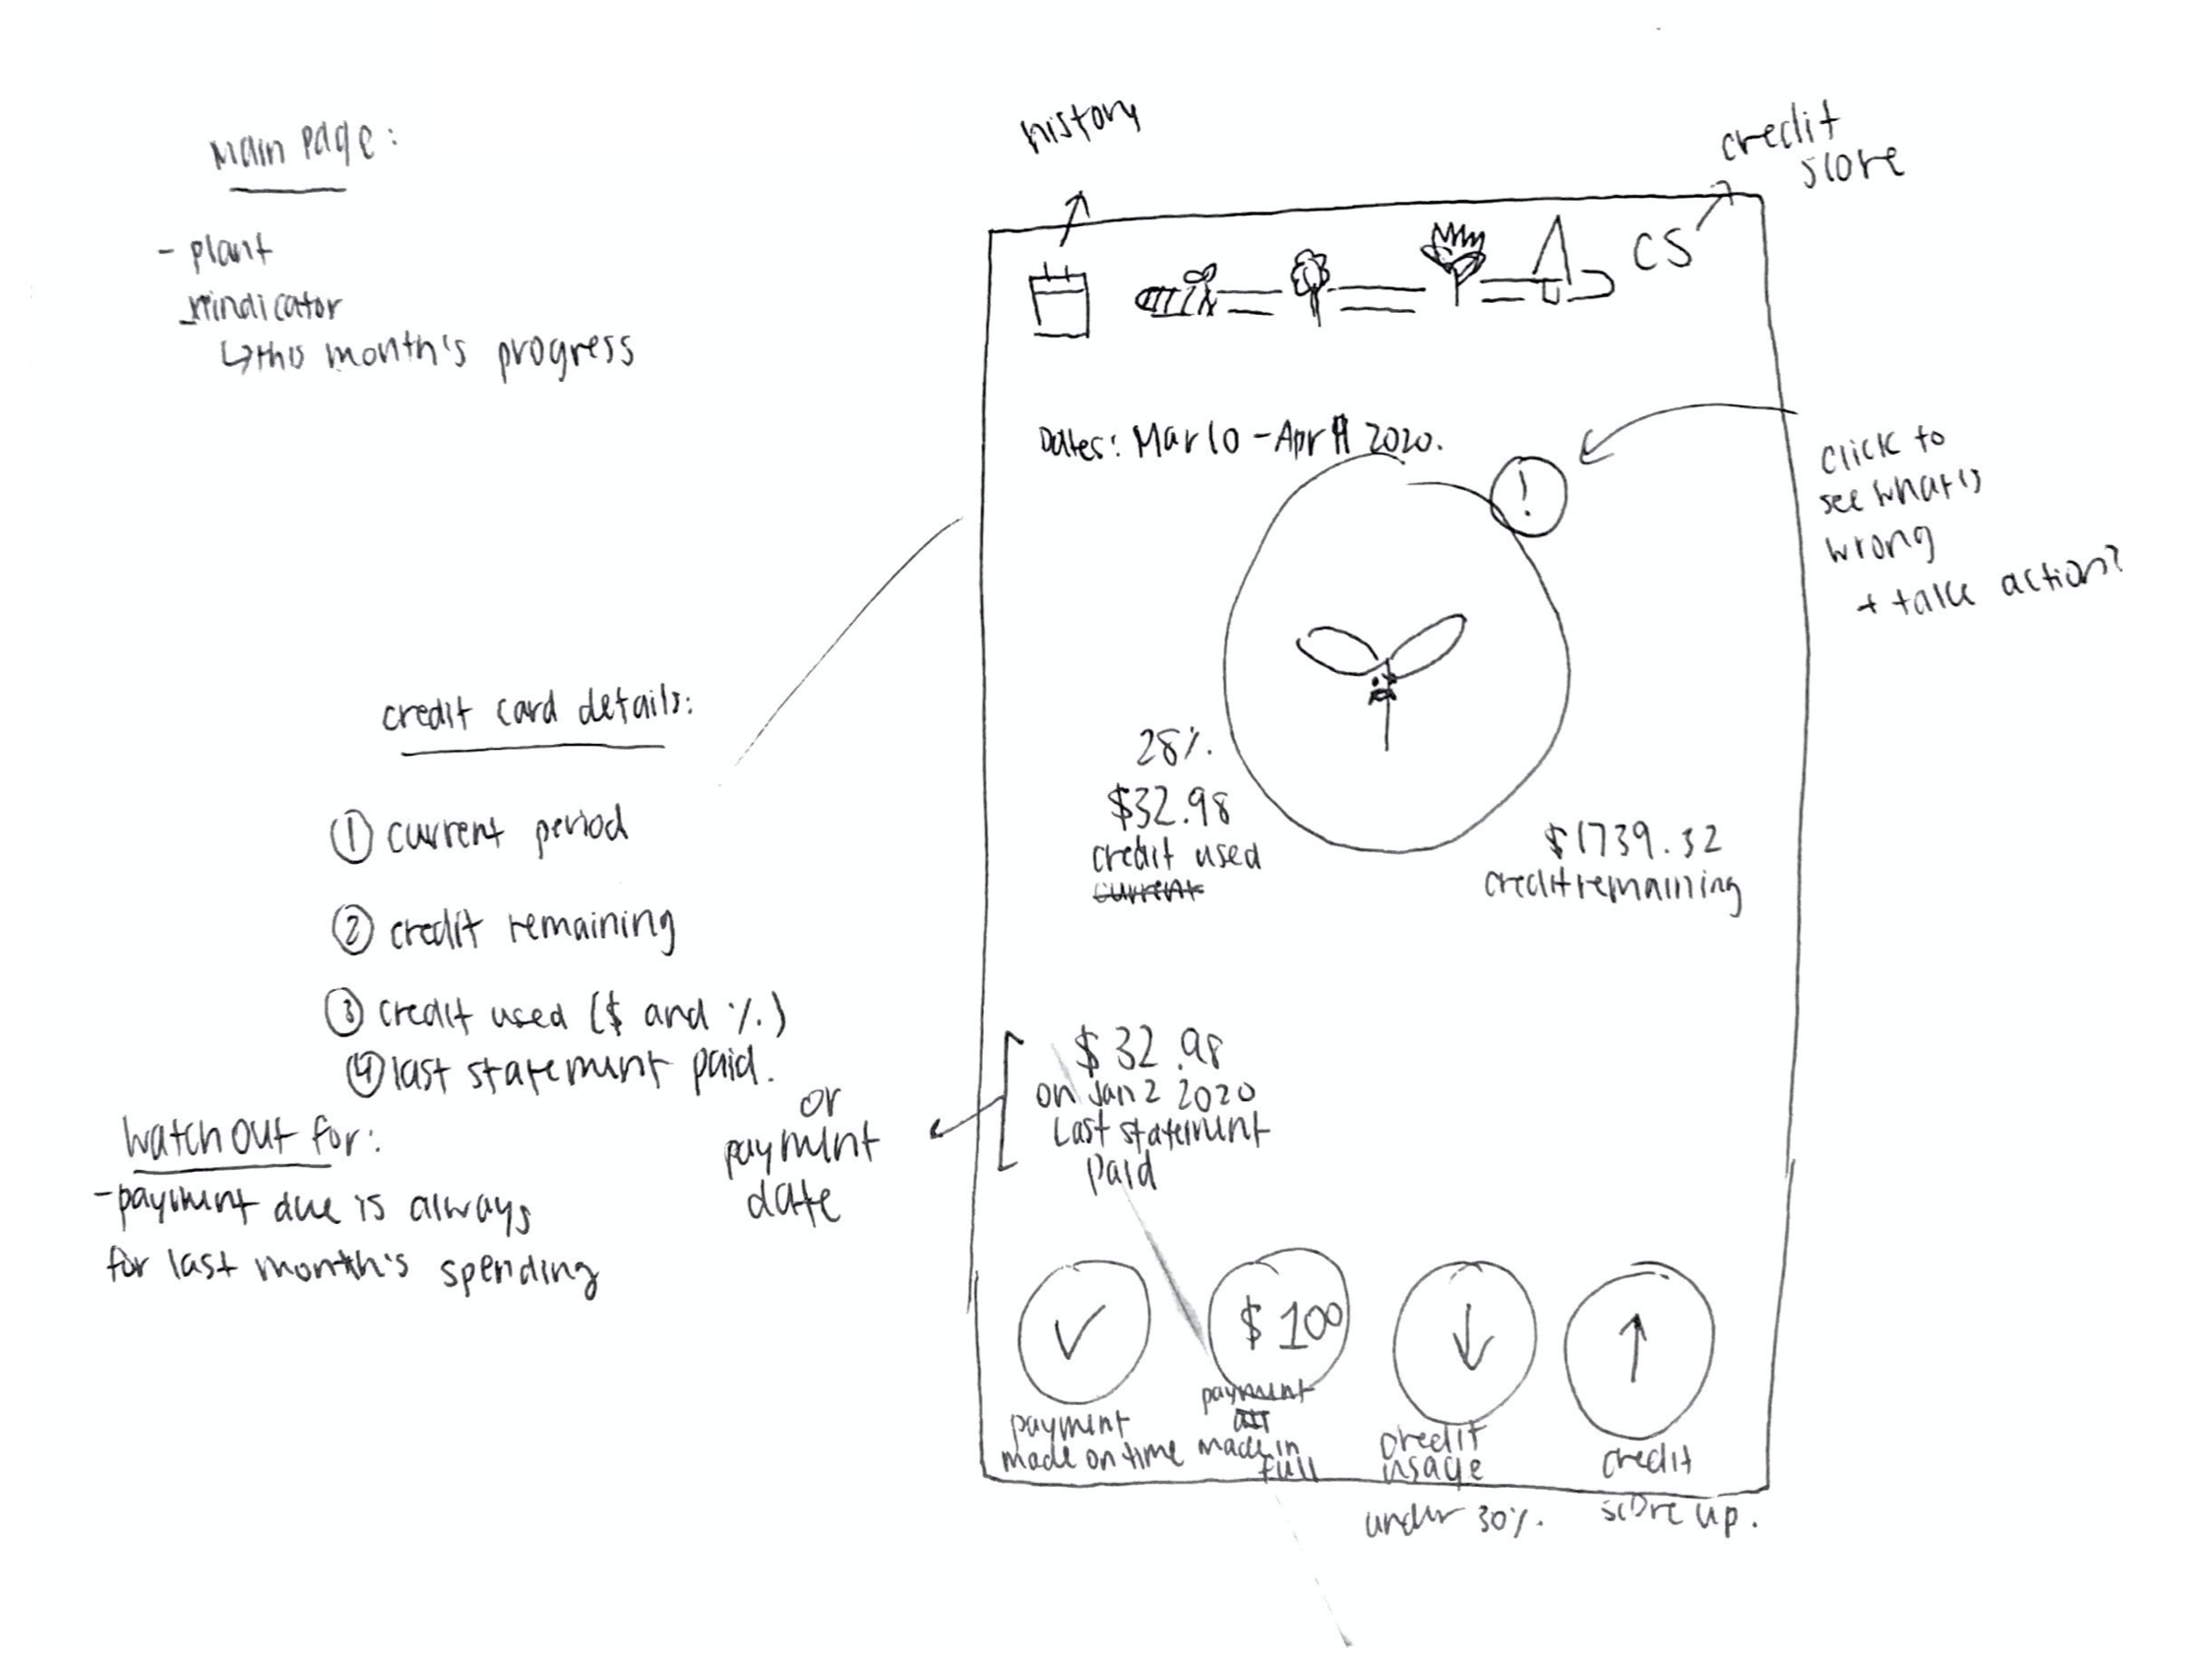 Main Page:
- plant
- indicator
↳ this month's progress
credit card details:
① current period
② credit remaining
③ credit used ($ and %)
④ last statement paid.
or
payment
date
Watch out for:
- payment due is always
for last month's spending
history
credit
score
CS
Dates: Mar 10 - Apr 2020.
!
click to
see what is
wrong
+ take action?
28%.
$32.98
credit used
current
$1739.32
credit remaining
$32.98
on Jan 2 2020
Last statement
paid
payment
made on time
$100
payment
made in
full
credit
usage
under 30%.
credit
score up.